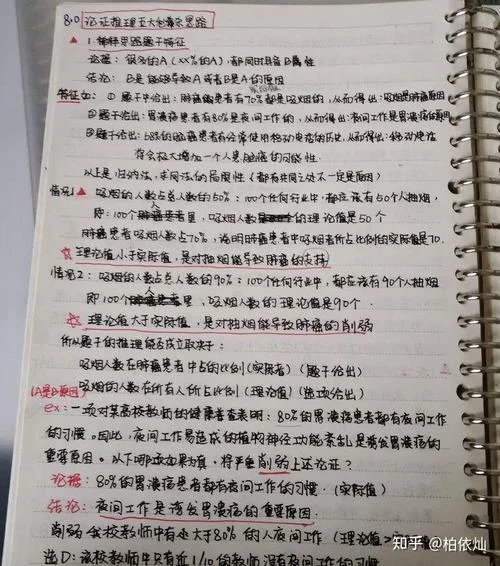 8.0 论证推理五大解题思路
1.解释思路题干特征
论据：很多的A（XX%的A），都同时具备B属性
结论：B是能够导致A或者B是A的原因
特征如：①题干中给出：肺癌患者有70%都是吸烟的，从而得出：吸烟是肺癌原因
②题干给出：胃溃疡患者有80%是夜间工作的，从而得出：夜间工作是胃溃疡的原因
③题干给出：58%的脑癌患者有经常使用移动电话的历史，从而得出：移动电话
将会极大增加一个人患脑癌的可能性.
以上是归纳法，求同法的局限性（都有共同之处不一定是原因）
情况1 吸烟的人数占总人数的50%：100个任何行业中，都应该有50个人抽烟，
即：100个肺癌患者里，吸烟人数的理论值是50个
肺癌患者吸烟人数占70%，说明肺癌患者中吸烟者所占比例的实际值是70.
☆理论值小于实际值，是对抽烟能导致肺癌的支持
情况2：吸烟的人数占总人数的90%：100个任何行业中，都应该有90个人抽烟
即100个肺癌患者里，吸烟人数的理论值是90个.
☆理论值大于实际值，是对抽烟能导致肺癌的削弱
所以题干的推理能否成立取决于：
吸烟人数在肺癌患者中占的比例（实际值）（题干给出）
吸烟的人数在所有人所占比例（理论值）（选项给出）
（A是B原因）
ex：一项对某高校教师的健康普查表明：80%的胃溃疡患者都有夜间工作
的习惯。因此，夜间工作易造成的植物神经功能紊乱是诱发胃溃疡的
重要原因。以下哪项如果为真，将严重削弱上述论证？
论据：80%的胃溃疡患者都有夜间工作的习惯.（实际值）
结论：夜间工作是诱发胃溃疡的重要原因.
削弱 会校教师中有处大于80%的人夜间工作（理论值>
选D：该校教师中只有近1/10的教师没有夜间工作的习惯
知乎 @柏依灿